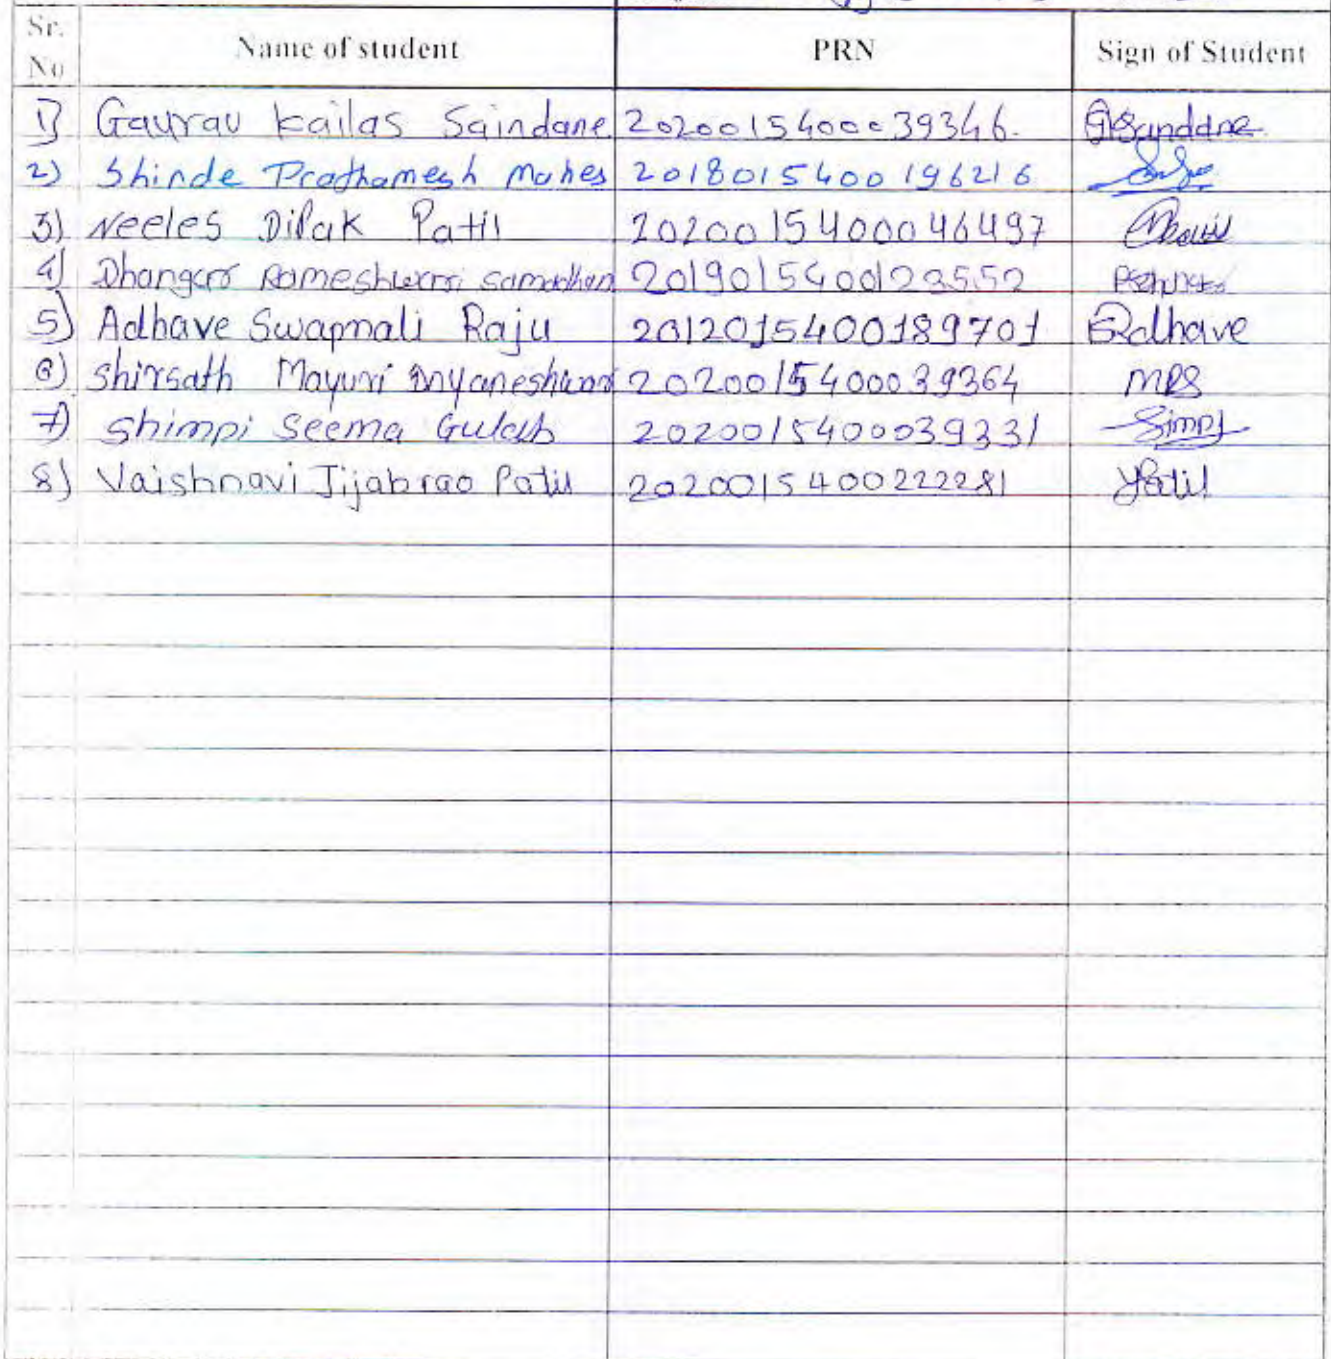 Sr. No Name of student PRN Sign of Student
1) Gaurav Kailas Saindane 2020015400039346.
2) Shinde Prathamesh Mahes 2018015400196216
3) Neeles Dipak Patil 2020015400046497
4) Dhangar Rameshwari samadhan 2019015400123552
5) Adhave Swapnali Raju 2012015400189701 Adhave
6) Shirsath Mayuri Dnyaneshwar 2020015400039364 MRS
7) Shimpi Seema Gulab 2020015400039331 Simpi
8) Vaishnavi Jijabrao Patil 2020015400222281 Patil